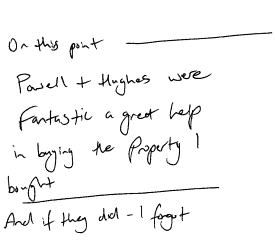 On this point
Powell + Hughes were
Fantastic a great help
in buying the Property I
bought
And if they did - I forgot